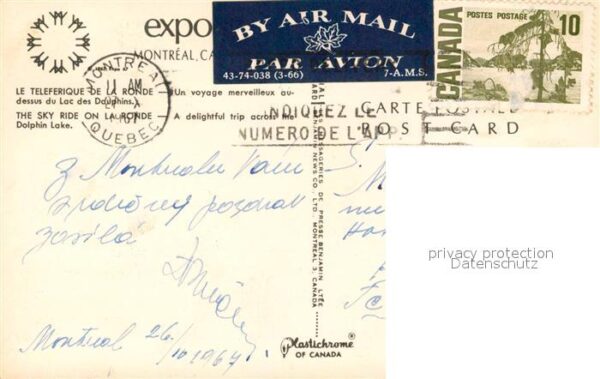 expo
MONTRÉAL, CA
BY AIR MAIL
PAR AVION
43-74-038 (3-66)
7-A.M.S.
POSTES POSTAGE
10
CANADA
MONTREAL
AM
QUEBEC
LE TELEFERIQUE DE LA RONDE
Un voyage merveilleux au-
dessus du Lac des Dauphins.
THE SKY RIDE ON LA RONDE
A delightful trip across the
Dolphin Lake.
INDIQUEZ LE
NUMERO DE L'APP.
CARTE POSTALE
POST CARD
MESSAGERIES DE PRESSE BENJAMIN LTÉE
NEWS CO., LTD., MONTREAL 3, CANADA
Z Montrealu Vám
srdečný pozdrav
Montreal 26/
10 1967
Plastichrome®
OF CANADA
privacy protection
Datenschutz